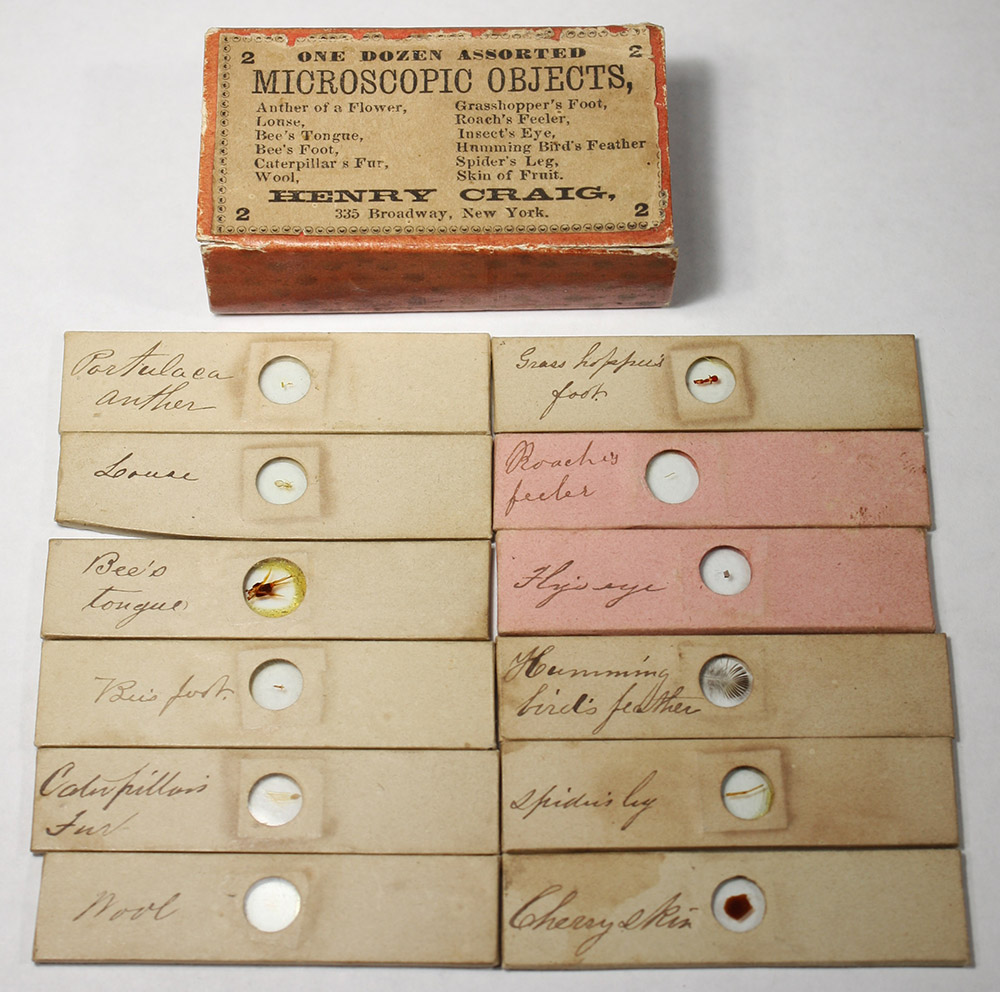 2 ONE DOZEN ASSORTED 2
MICROSCOPIC OBJECTS,
Anther of a Flower,
Louse,
Bee's Tongue,
Bee's Foot,
Caterpillar s Fur,
Wool,
Grasshopper's Foot,
Roach's Feeler,
Insect's Eye,
Humming Bird's Feather
Spider's Leg,
Skin of Fruit.
HENRY CRAIG,
2 335 Broadway, New York. 2
Portulaca
anther
Louse
Bee's
tongue
Bee's foot.
Caterpillar's
Fur
Wool
Grass hopper's
foot.
Roach's
feeler
Fly's eye
Humming
bird's feather
Spider's leg
Cherry skin